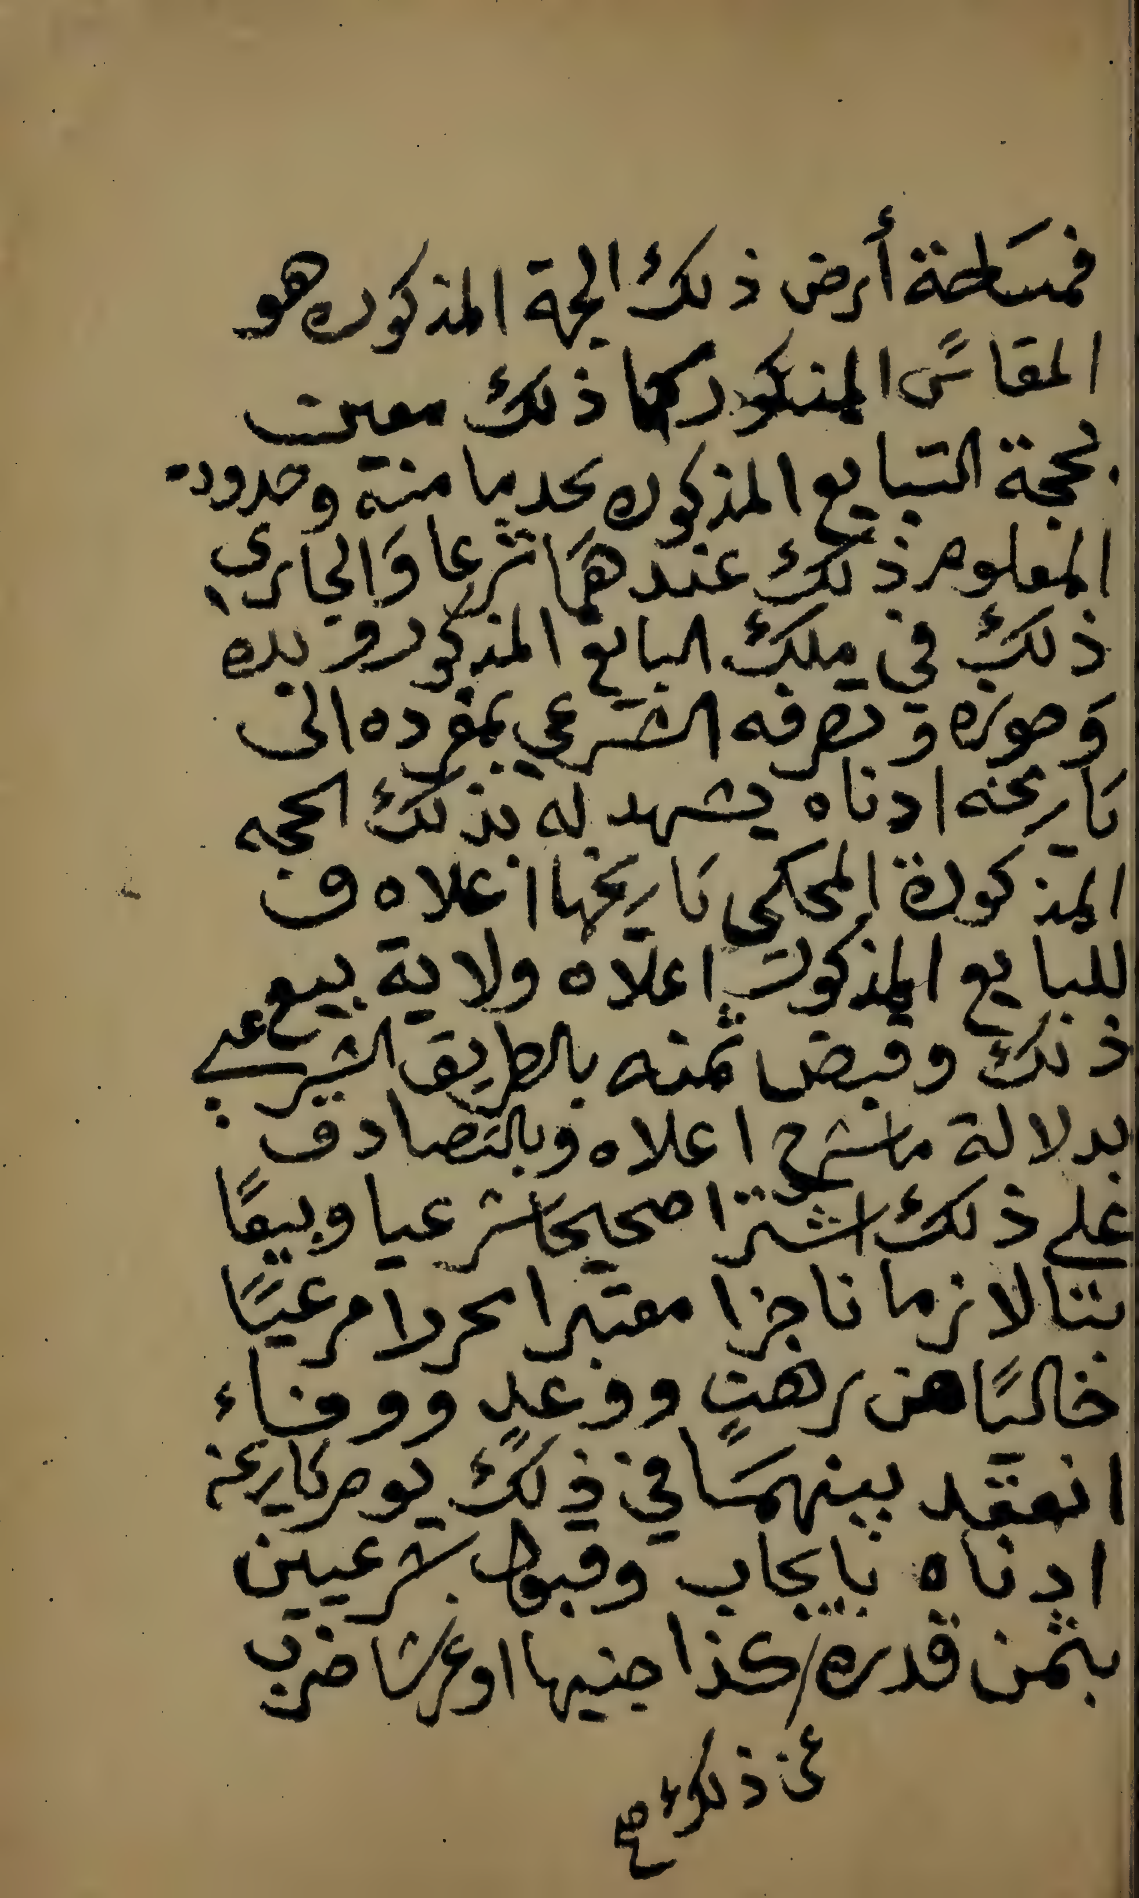 فمساحة أرض ذلك الجهة المذكوره هو
المقاس المذكور كما ذلك معين
بحجة التبايع المذكوره بحد يمامنة وحدوده
المعلوم ذلك عندهما شرعا وَالجارى
ذلك في ملك البايع المذكور و بده
وَحوزه و تصرفه الشرعي بمفرده الى
تاريخه ادناه يشهد له بذلك الحجه
المذكورة المحكى تاريخها اعلاه و
للبايع المذكور اعلاه ولاية بيع
ذلك وقبض ثمنه بالطريق الشرعى
بدلالة ماشرح اعلاه وبالتصادق
على ذلك اشترا صحيحا شرعيا وبيعًا
بتا لازما ناجزا معتبرا محررا مرعيًا
خاليًا من رهنٍ ووعدٍ ووفاء
انعقد بينهمَا في ذلك يوم تاريخه
ادناه بايجاب وقبول شرعيين
بثمن قدره / كذا جنيها او غرشا ضرب
عن ذلك